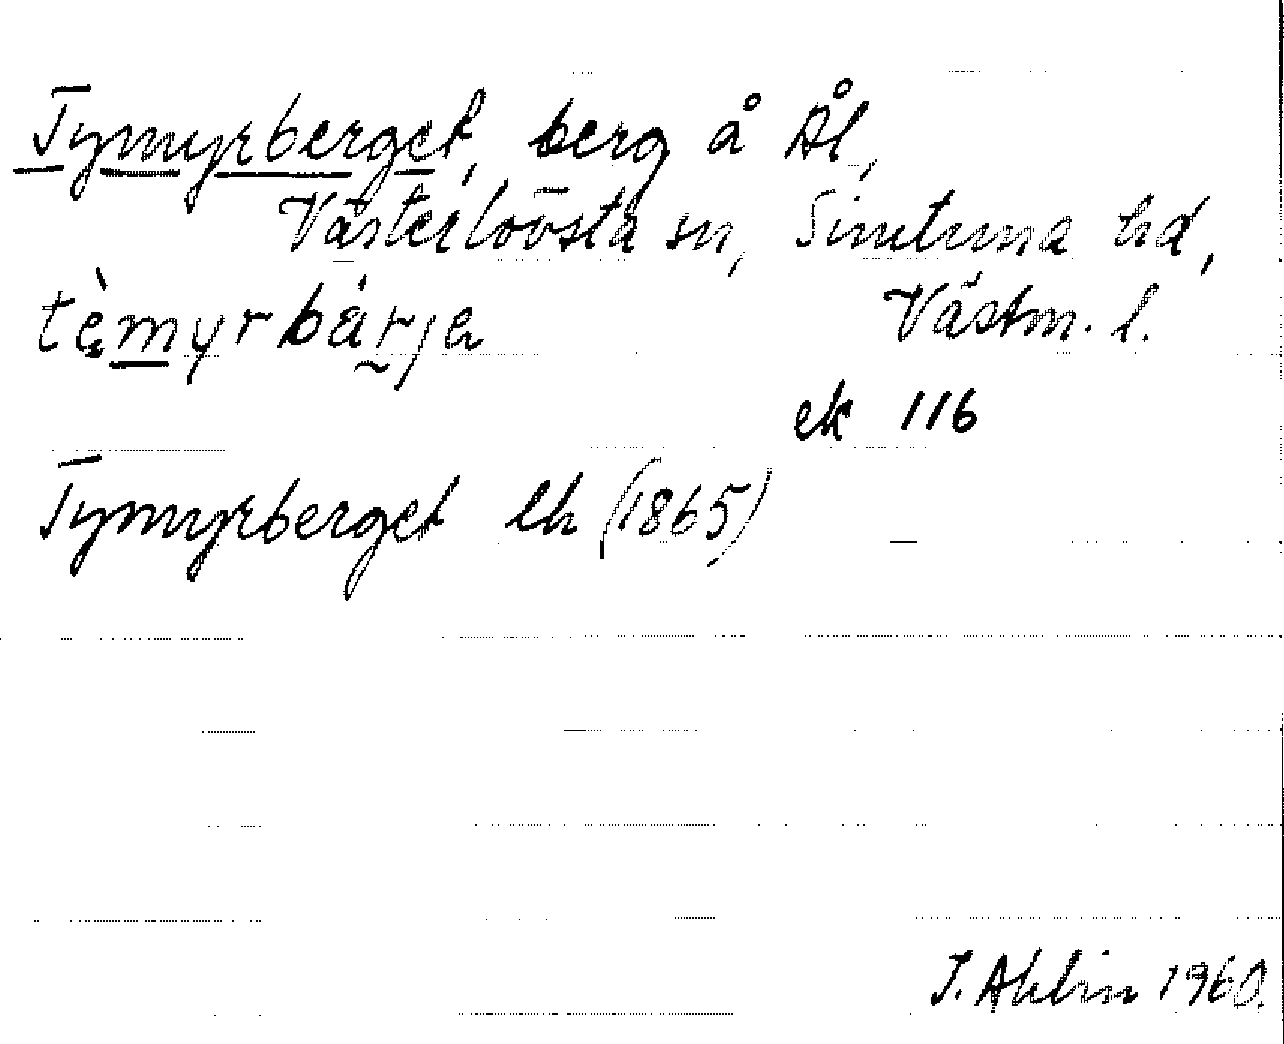 Tymyrberget, berg å Ål,
Västerlövsta sn, Simtuna hd,
tèmyrbär̰ja Västm. l.
ek 116
Tymyrberget Eh (1865)
I. Ahlin 1960.